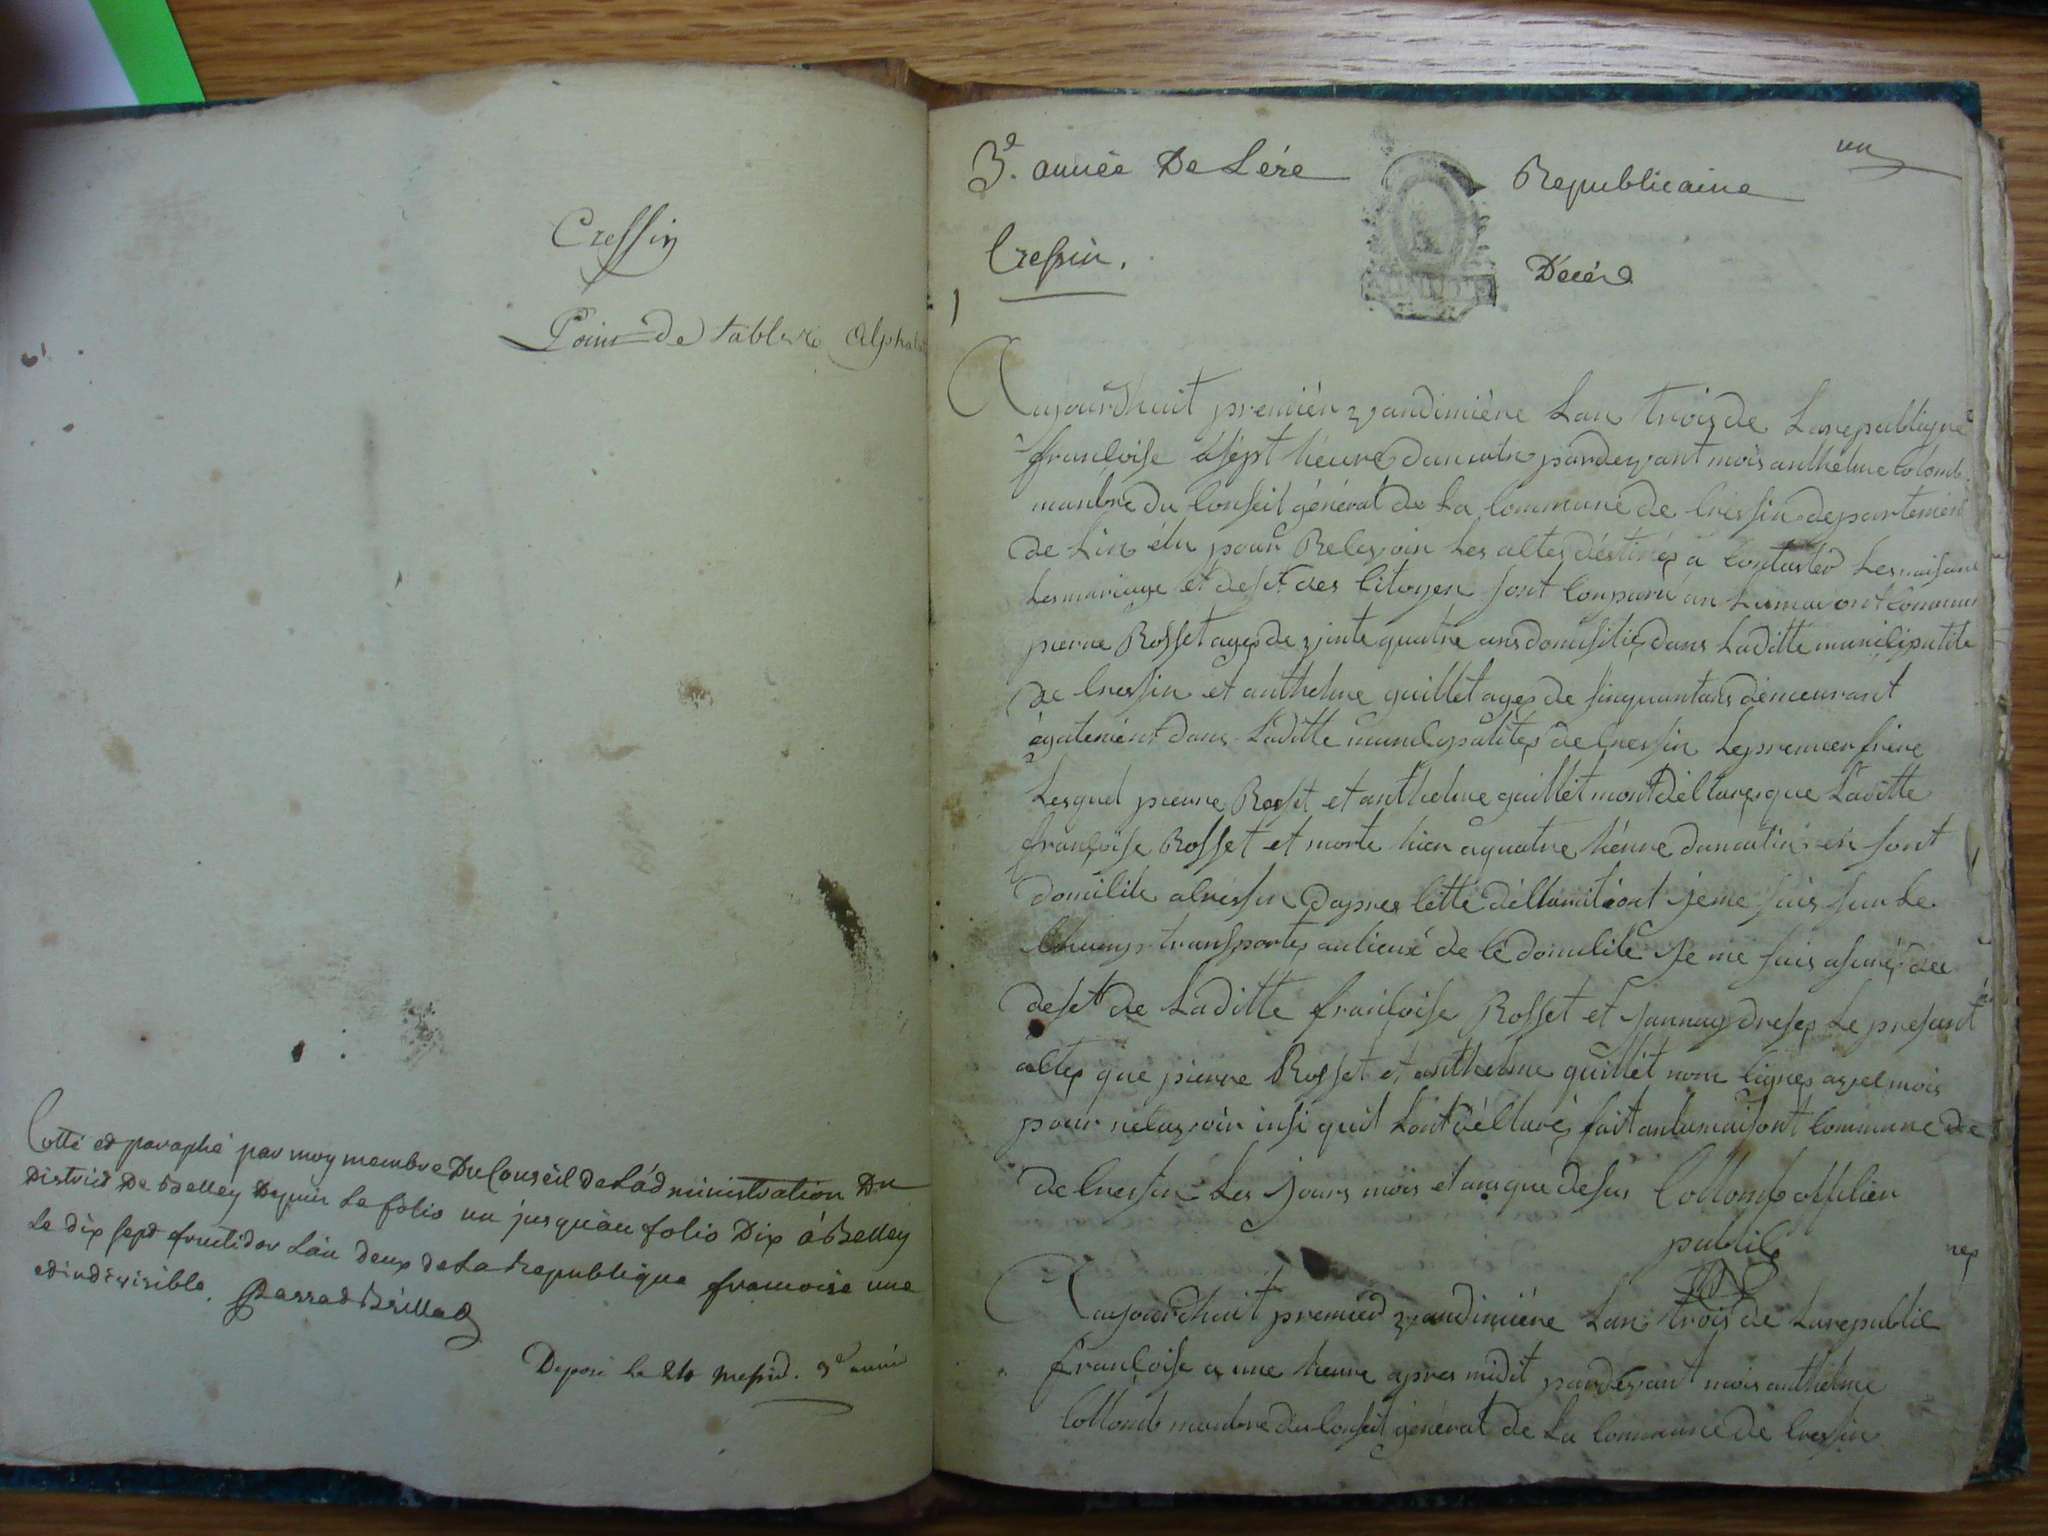 Cressin
Point de tablere Alphab
Cotté et paraphé par moy membre Du Conseil de L'administration Du
District De Belley Depuis Le folio un jusqu'au folio Dix à Belley
Le dix sept fructidor L'an deux de La Republique francoise une
et indivisible.
Deposé le 24 messid. 3e année
un
3e. année De L'ére Republicaine
Cressin. Décés
1
Aujourdhuit premiér vandimiére Lan trois de La republique
françoise à sept heure du matin pardevant mois anthelme Colomb
manbre du Conseil général de La Commune de Cressin departement
de Lin élu pour Relevoir Les actes déstinés a Constater Les naisance
Les mariage et deset des Citoyen sont Conparu an La maison Commun
pierre Rosset agés de trente quatre ans domisiliés dans Laditte municipalite
de Cressin et anthelme guillet ages de sinquantans démeurant
égalemént dans Laditte municipalités de Cressin Le premier frére
Lesquel pierre Rosset et anthelme guillet mont déClarés que Laditte
françoise Rosset et morte hier a quatre héure du matin en sont
domicile a Cressin d'apres Cette déClaratéont je me suis sur Le
Champs transportés au lieux de Cé domicile Je me suis asurés du
deset de Laditte françoise Rosset et jannay dresés Le presant
actes que pierre Rosset et anthelme guillet nont Cignés avec mois
pour nelavoir insi quil Lont déClarés fait an La maisont Commune de
de Cressin Les jours mois et ans que desus Collomb officier
public
Aujourdhuit premiér vandimiére Lan trois de La republic
françoise a une heure apres midit pardevant mois anthelme
Collomb manbre du Conseil général de La Commune de Cressin